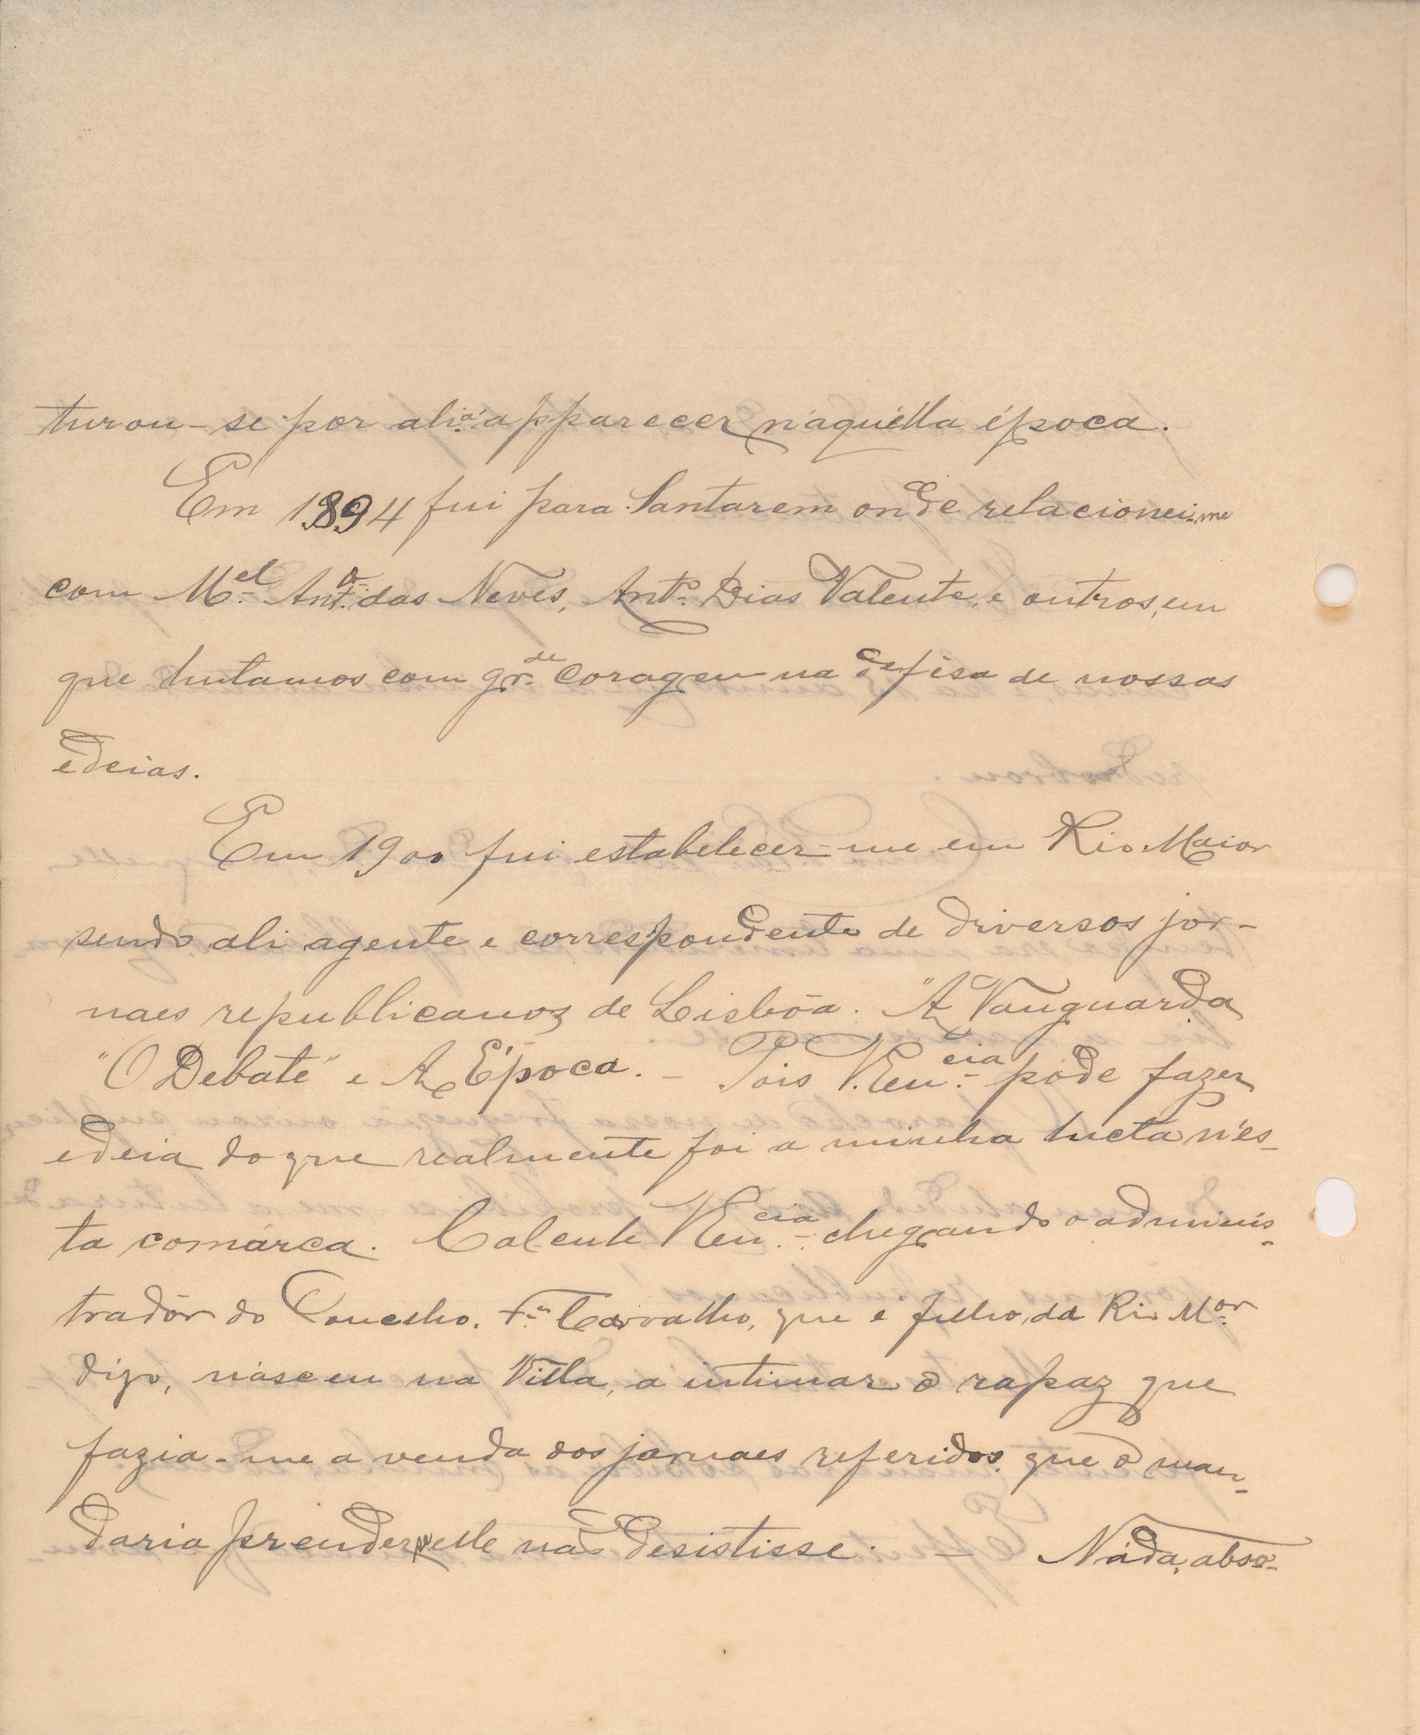 turou-se por ali a apparecer n'aquella época.
Em 1894 fui para Santarem onde relacionei-me
com M.el Ant.o das Neves, Ant.o Dias Valente, e outros, em
que luctamos com gr.de coragem na defêsa de nossas
edeias.
Em 1900 fui estabelecer-me em Rio Maior
sendo ali agente e correspondente de diversos jor-
naes republicanos de Lisbôa. "A Vanguarda
"O Debate" e A Época. — Pois V. Eu.cia pode fazer
edeia do que realmente foi a minha lucta n'es-
ta comárca. Calcule V Eu.cia chegando o adminis-
tradôr do Concelho. Carvalho, que é filho, da Rio M.or
digo, nasceu na Villa, a intimar o rapaz que
fazia-me a venda dos jornaes referidos. que o man-
daria prender elle não desistisse. — Náda, abso-